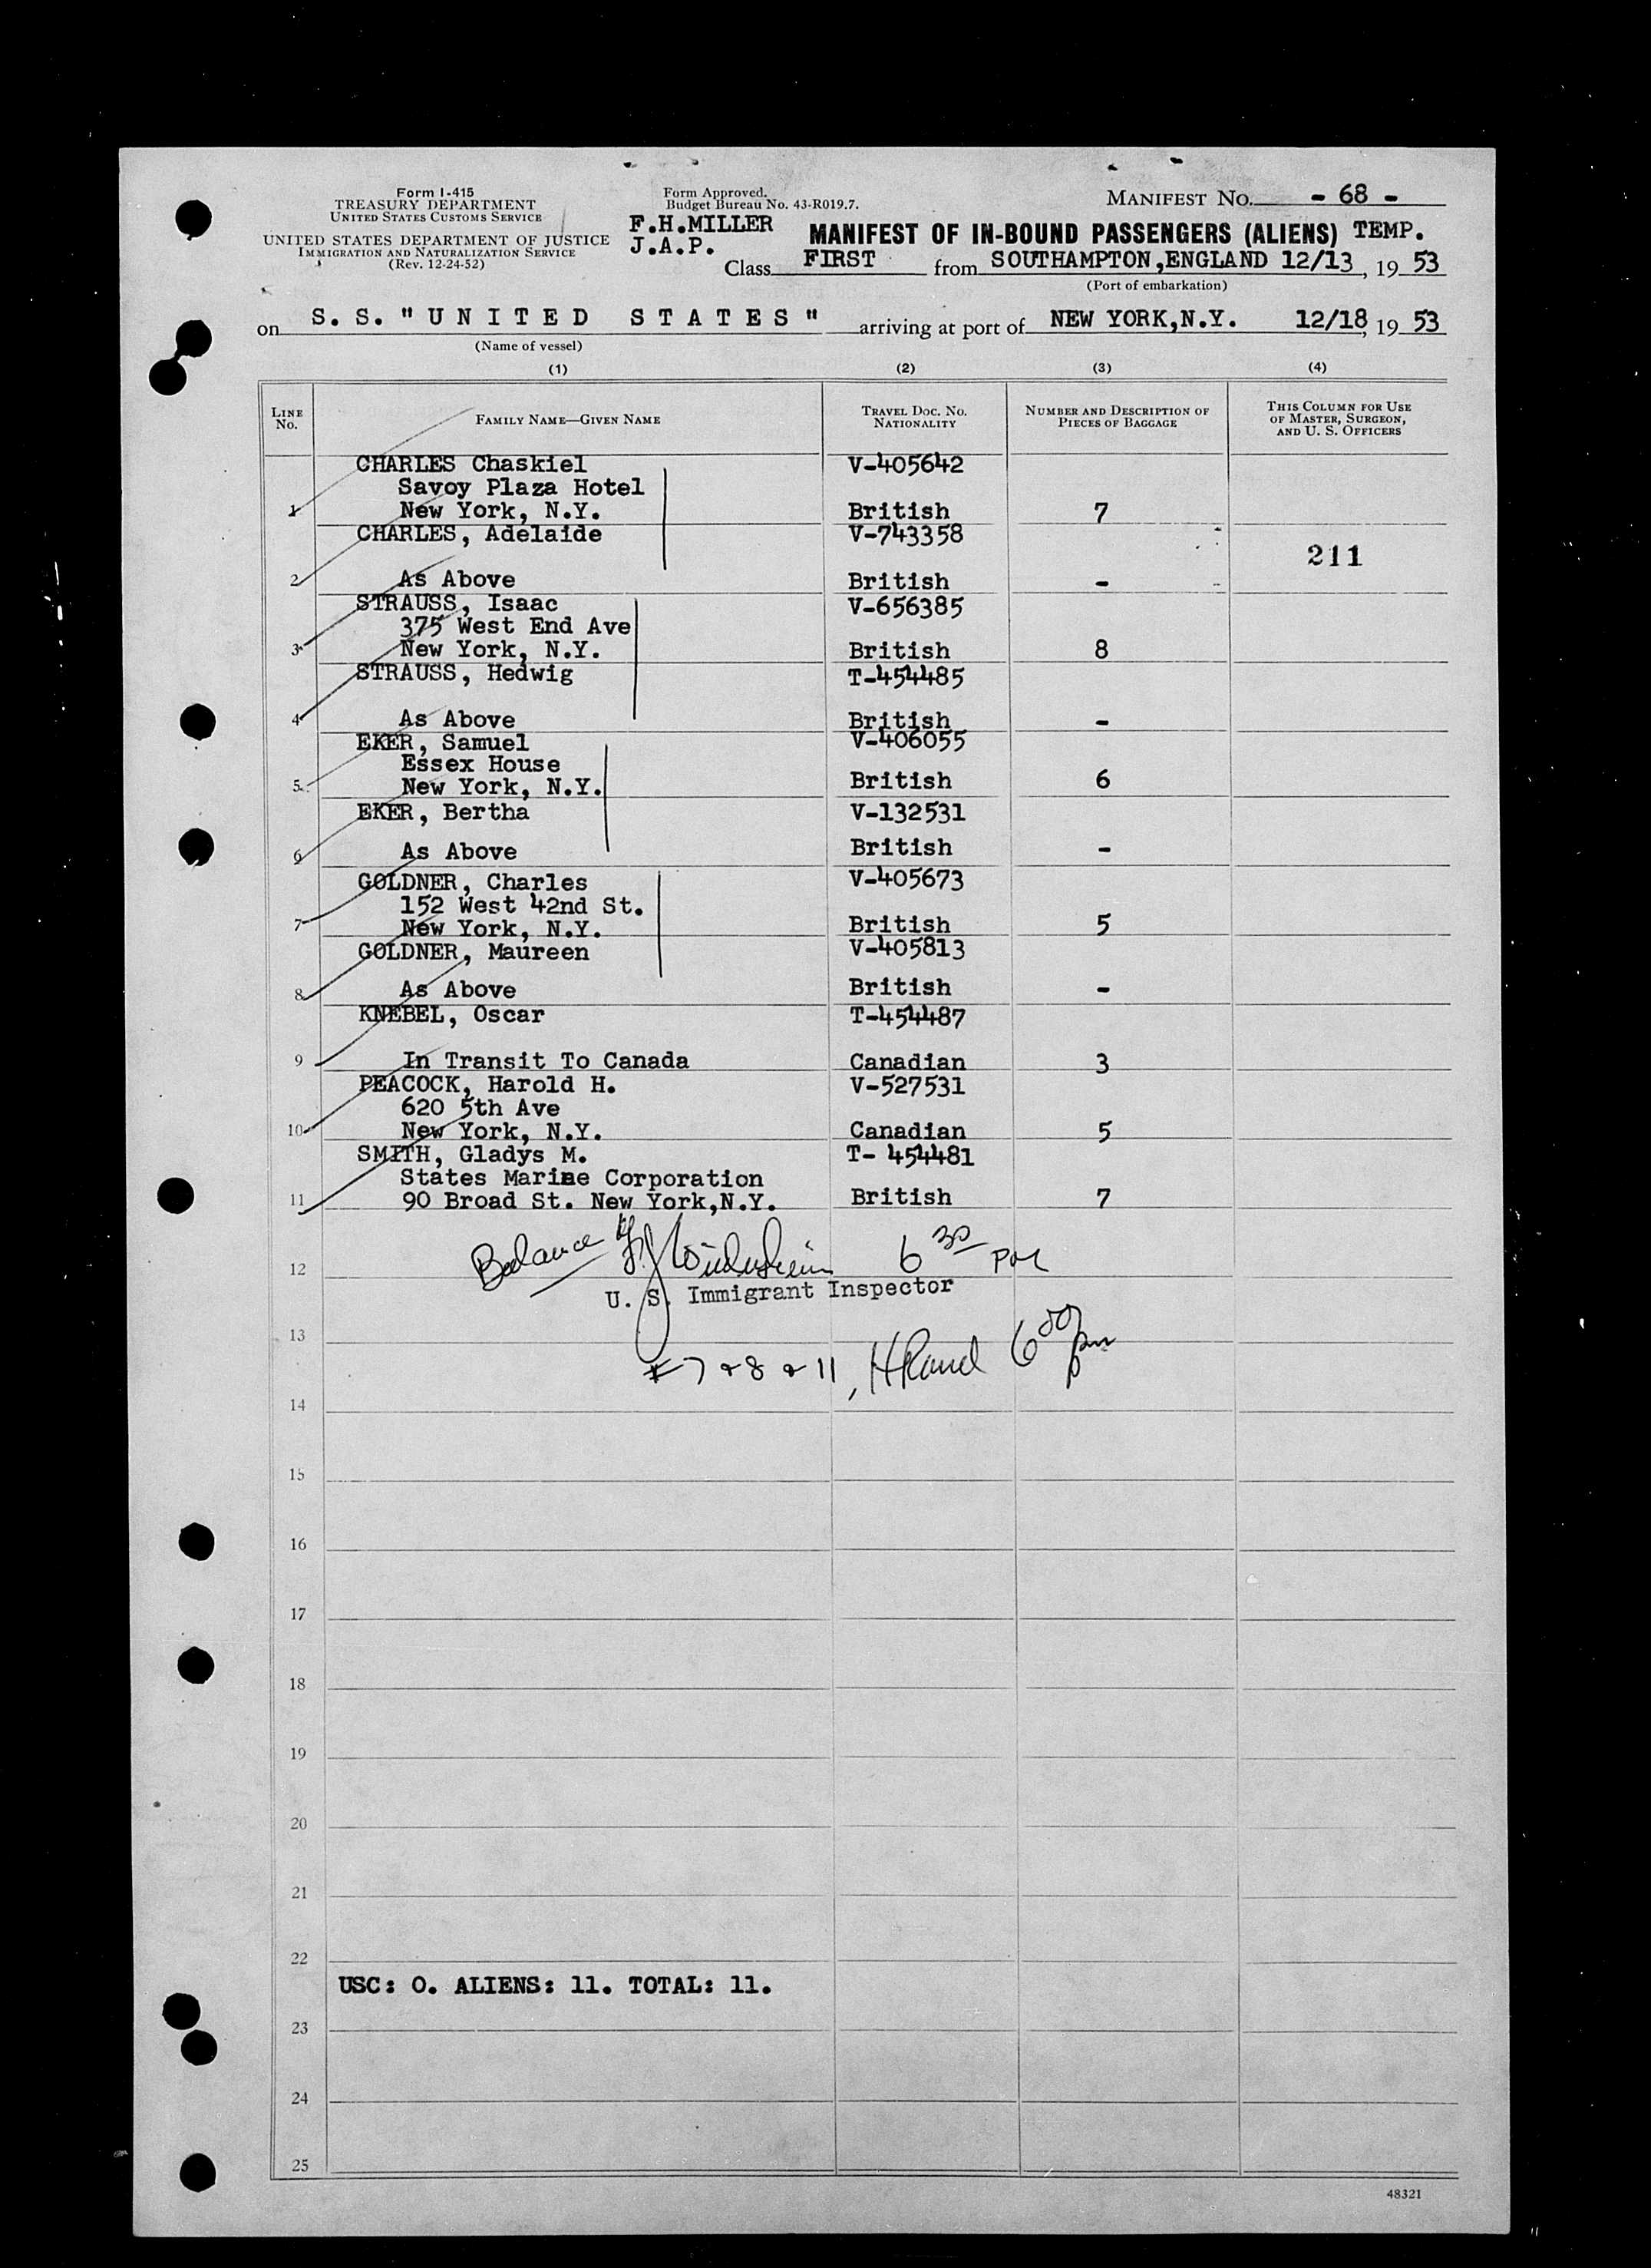 Form I-415
TREASURY DEPARTMENT
UNITED STATES CUSTOMS SERVICE
UNITED STATES DEPARTMENT OF JUSTICE
IMMIGRATION AND NATURALIZATION SERVICE
(Rev. 12-24-52)
Form Approved.
Budget Bureau No. 43-R019.7.
F.H.MILLER
J.A.P.
MANIFEST NO. - 68 -
MANIFEST OF IN-BOUND PASSENGERS (ALIENS) TEMP.
Class FIRST from SOUTHAMPTON,ENGLAND 12/13, 19 53
(Port of embarkation)
on S. S. "UNITED STATES" arriving at port of NEW YORK,N.Y. 12/18, 19 53
(Name of vessel)
(1) (2) (3) (4)
LINE NO. FAMILY NAME—GIVEN NAME TRAVEL DOC. NO. NATIONALITY NUMBER AND DESCRIPTION OF PIECES OF BAGGAGE THIS COLUMN FOR USE OF MASTER, SURGEON, AND U. S. OFFICERS
CHARLES Chaskiel V-405642
Savoy Plaza Hotel
1 New York, N.Y. British 7
CHARLES, Adelaide V-743358
211
2 As Above British -
STRAUSS, Isaac V-656385
375 West End Ave
3 New York, N.Y. British 8
STRAUSS, Hedwig T-454485
4 As Above British -
EKER, Samuel V-406055
Essex House
5 New York, N.Y. British 6
EKER, Bertha V-132531
6 As Above British -
GOLDNER, Charles V-405673
152 West 42nd St.
7 New York, N.Y. British 5
GOLDNER, Maureen V-405813
8 As Above British -
KNEBEL, Oscar T-454487
9 In Transit To Canada Canadian 3
PEACOCK, Harold H. V-527531
620 5th Ave
10 New York, N.Y. Canadian 5
SMITH, Gladys M. T- 454481
States Marine Corporation
11 90 Broad St. New York,N.Y. British 7
12 Balance 6 30 pm
U. S. Immigrant Inspector
13
#7 & 8 & 11, 6 00 pm
14
15
16
17
18
19
20
21
22
USC: 0. ALIENS: 11. TOTAL: 11.
23
24
25
48321